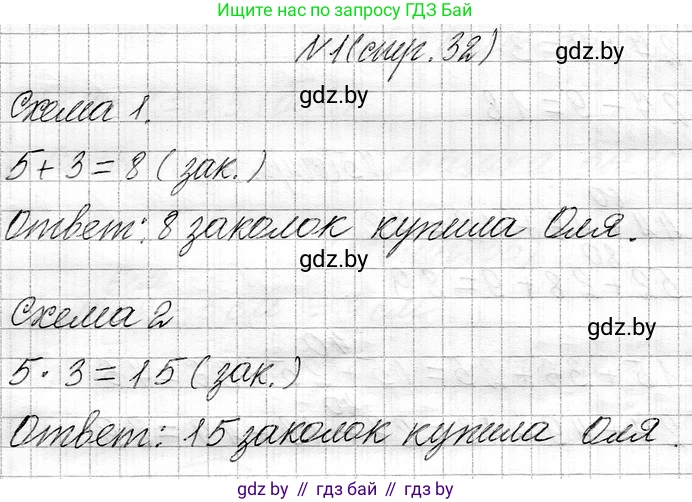 Ищите нас по запросу ГДЗ Бай
№1(стр. 32)
gdz.by
gdz.by
Схема 1.
5 + 3 = 8 (зак.)
Ответ: 8 заколок купила Оля.
gdz.by
Схема 2
gdz.by
5 · 3 = 15 (зак.)
Ответ: 15 заколок купила Оля.
gdz.by // гдз бай // gdz.by